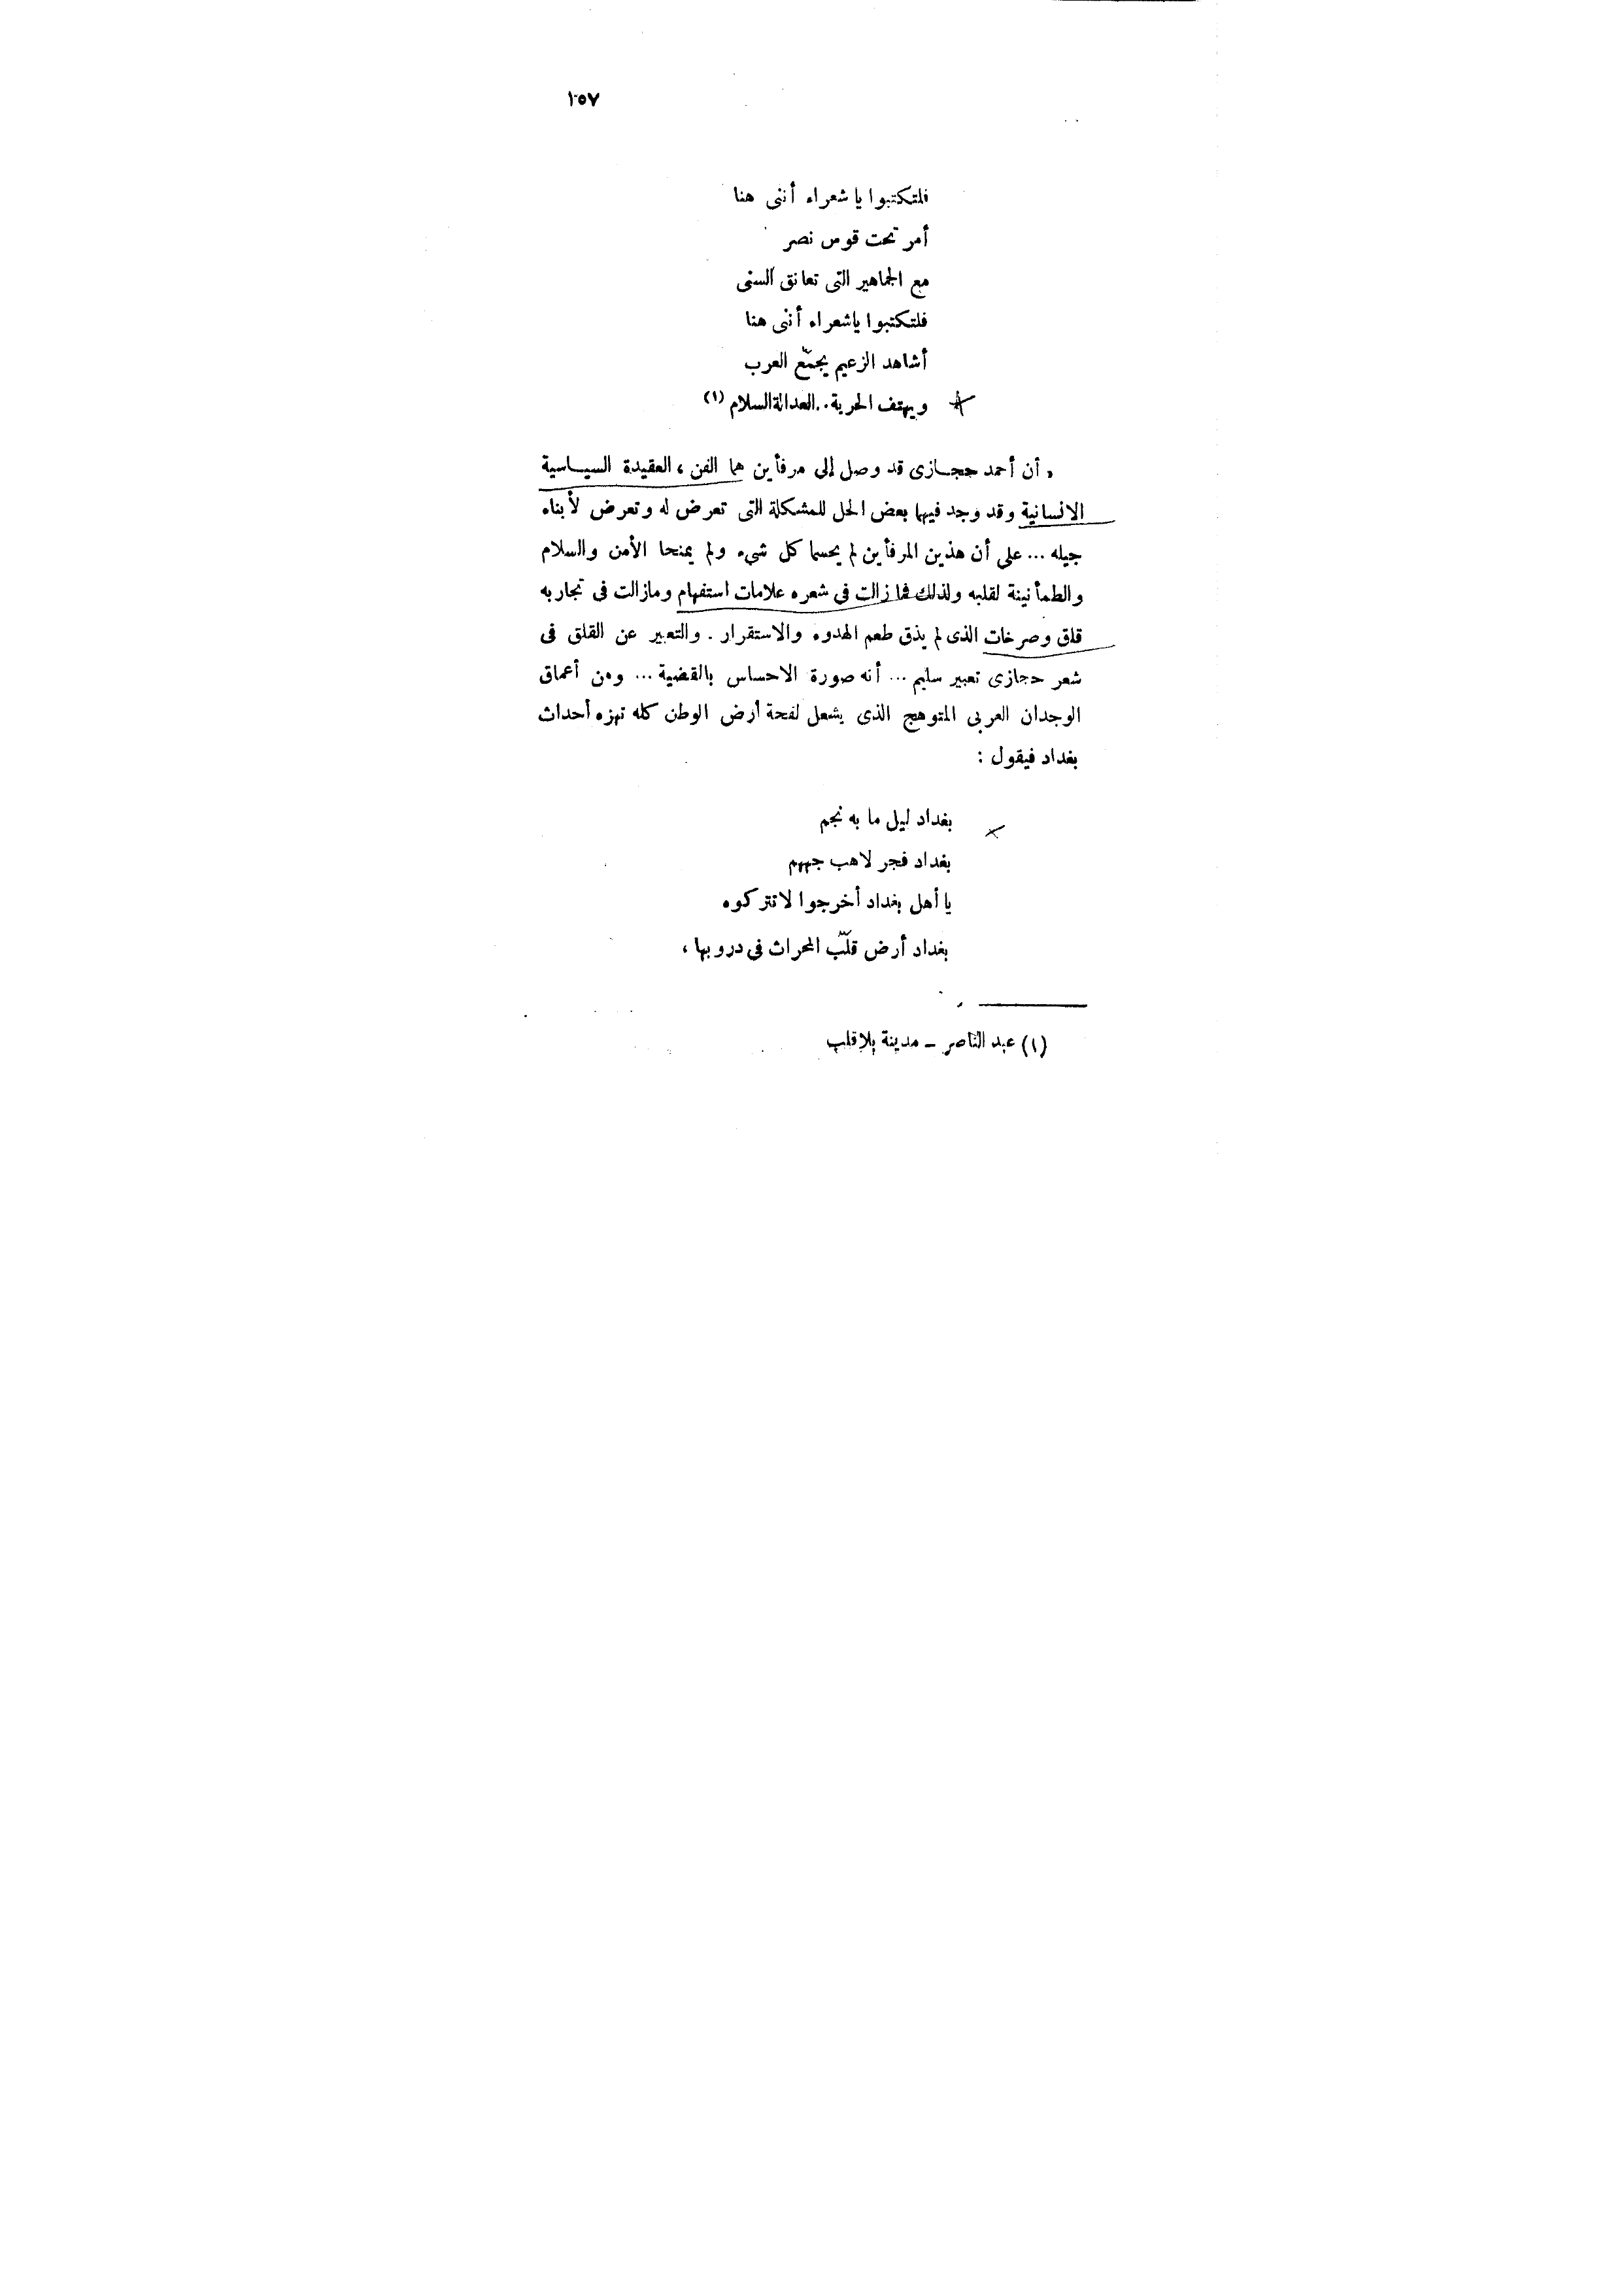 ١٥٧
فلتكتبوا يا شعراء أننى هنا
أمر تحت قوس نصر
مع الجماهير التى تعانق السنى
فلتكتبوا ياشعراء أننى هنا
أشاهد الزعيم يجمّع العرب
ويهتف الحرية..العدالة السلام (١)
، أن أحمد حجازى قد وصل إلى مرفأين هما الفن ، العقيدة السياسية
الانسانية وقد وجد فيهما بعض الحل للمشكلة التى تعرض له وتعرض لأبناء
جيله ... على أن هذين المرفأين لم يحسما كل شيء ولم يمنحا الأمن والسلام
والطمأنينة لقلبه ولذلك فمازالت فى شعره علامات استفهام ومازالت فى تجاربه
قلق وصرخات الذى لم يذق طعم الهدوء والاستقرار . والتعبير عن القلق فى
شعر حجازى تعبير سليم ... أنه صورة الاحساس بالقضية ... ومن أعماق
الوجدان العربى المتوهج الذى يشعل لفحة أرض الوطن كله تهزه أحداث
بغداد فيقول :
بغداد ليل ما به نجم
بغداد فجر لاهب جهم
يا أهل بغداد أخرجوا لاتتركوه
بغداد أرض قلّب المحراث فى دروبها ،
(١) عبد الناصر - مدينة بلا قلب